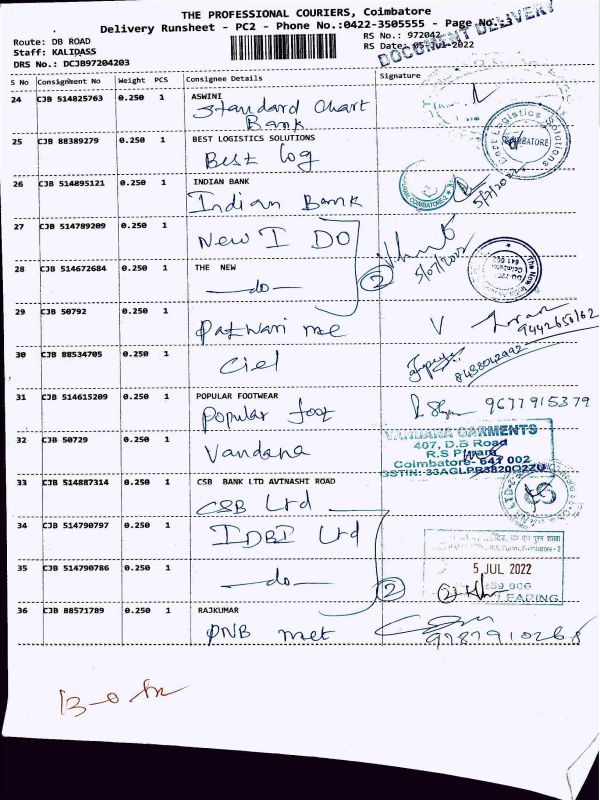 THE PROFESSIONAL COURIERS, Coimbatore
Delivery Runsheet - PC2 - Phone No.:0422-3505555 - Page No.
DOCUMENT DELIVERY
Route: DB ROAD
RS No.: 972042
Staff: KALIDASS
RS Date: 05-Jul-2022
DRS No.: DCJB97204203
S No Consignment No Weight PCS Consignee Details Signature
24 CJB 514825763 0.250 1 ASWINI
Standard Chart
Bank
25 CJB 88389279 0.250 1 BEST LOGISTICS SOLUTIONS
Best Log
Best Logistics Solutions
COIMBATORE
26 CJB 514895121 0.250 1 INDIAN BANK
Indian Bank
5/7/2022
27 CJB 514789209 0.250 1
New I DO
5/07/2022
28 CJB 514672684 0.250 1 THE NEW
—do—
2
29 CJB 50792 0.250 1
Patwari me
9442650162
30 CJB 88534705 0.250 1
Ciel
8488042992
31 CJB 514615209 0.250 1 POPULAR FOOTWEAR
Popular foot
9677915379
32 CJB 50729 0.250 1
Vandana
VANDANA GARMENTS
467, D.B Road
R.S Puram
Coimbatore- 641 002
GSTIN: 33AGLPR3820Q2ZU
33 CJB 514887314 0.250 1 CSB BANK LTD AVTNASHI ROAD
CSB Ltd
34 CJB 514790797 0.250 1
IDBI Ltd
35 CJB 514790786 0.250 1
—do—
2
5 JUL 2022
CLEARING
36 CJB 88571789 0.250 1 RAJKUMAR
PNB met
9787910268